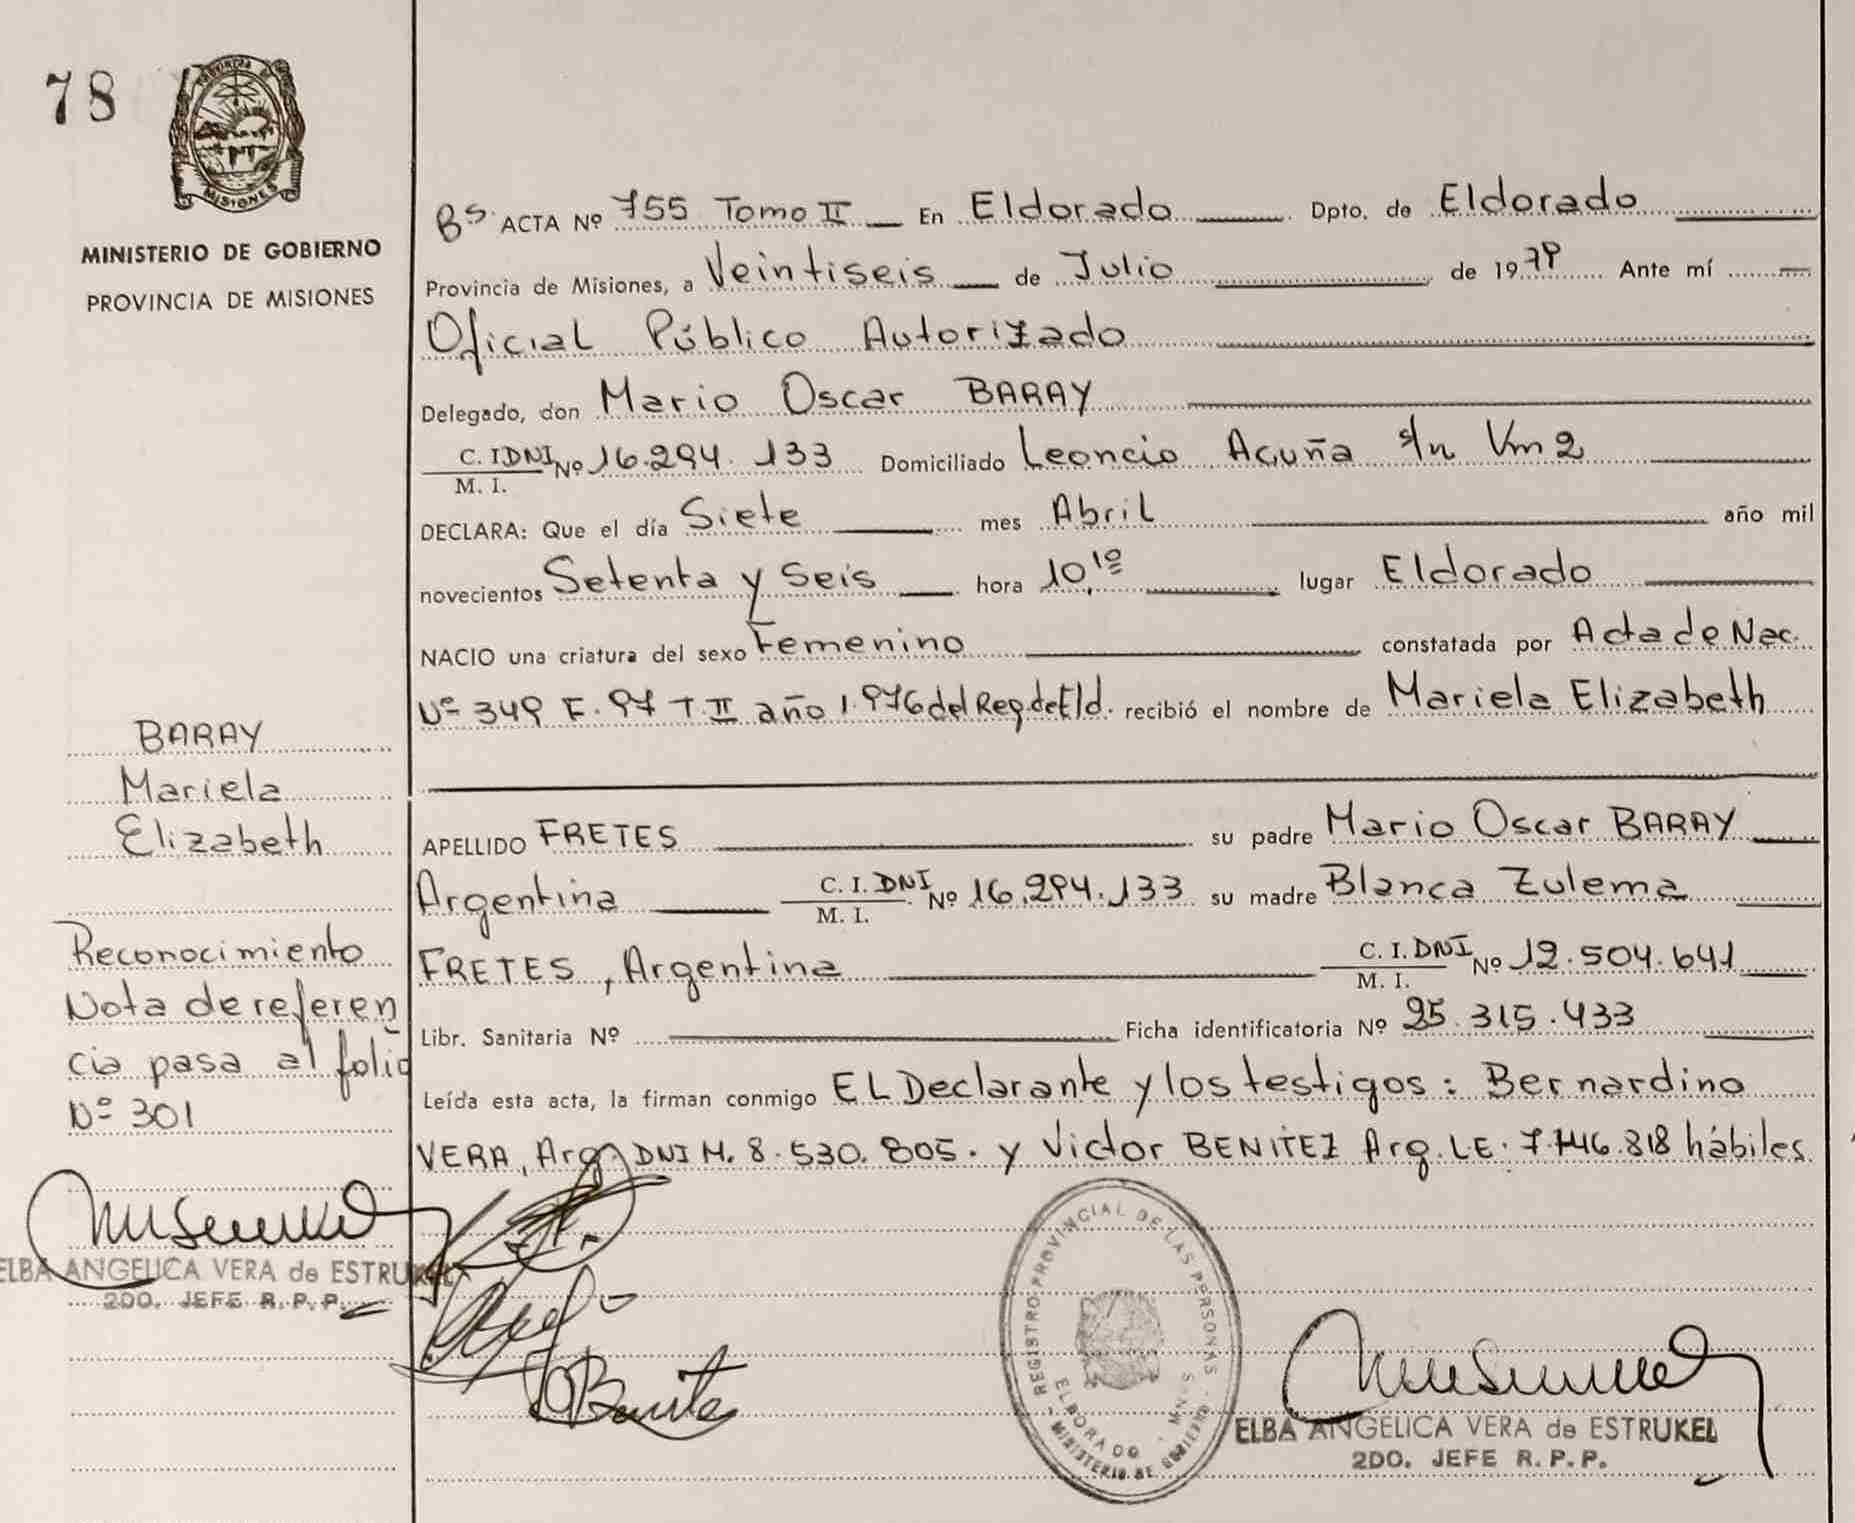 78
PROVINCIA DE
MISIONES
MINISTERIO DE GOBIERNO
PROVINCIA DE MISIONES
BARAY
Mariela
Elizabeth
Reconocimiento
Nota de referen
cia pasa al folio
Nº 301
ELBA ANGELICA VERA de ESTRUKEL
2DO. JEFE R.P.P.
Bs. ACTA Nº 755 Tomo II En Eldorado Dpto. de Eldorado
Provincia de Misiones, a Veintiseis de Julio de 19 Ante mí
Oficial Público Autorizado
Delegado, don Mario Oscar BARAY
C. I. DNI M. I. Nº 16.294.133 Domiciliado Leoncio Acuña s/n Km 2
DECLARA: Que el día Siete mes Abril año mil
novecientos Setenta y Seis hora 10,10 lugar Eldorado
NACIO una criatura del sexo Femenino constatada por Acta de Nac.
Nº 349 F. 97 T. II año 1.976 del Reg. de Eld. recibió el nombre de Mariela Elizabeth
APELLIDO FRETES su padre Mario Oscar BARAY
Argentina C. I. DNI M. I. Nº 16.294.133 su madre Blanca Zulema
FRETES, Argentina C. I. DNI M. I. Nº 12.504.641
Libr. Sanitaria Nº Ficha identificatoria Nº 25.315.433
Leída esta acta, la firman conmigo EL Declarante y los testigos: Bernardino
VERA, Arg. DNI M. 8.530.805. y Victor BENITEZ Arg. LE. 7.746.818 hábiles
REGISTRO PROVINCIAL DE LAS PERSONAS
ELDORADO - MNES
MINISTERIO DE GOBIERNO
ELBA ANGELICA VERA de ESTRUKEL
2DO. JEFE R.P.P.